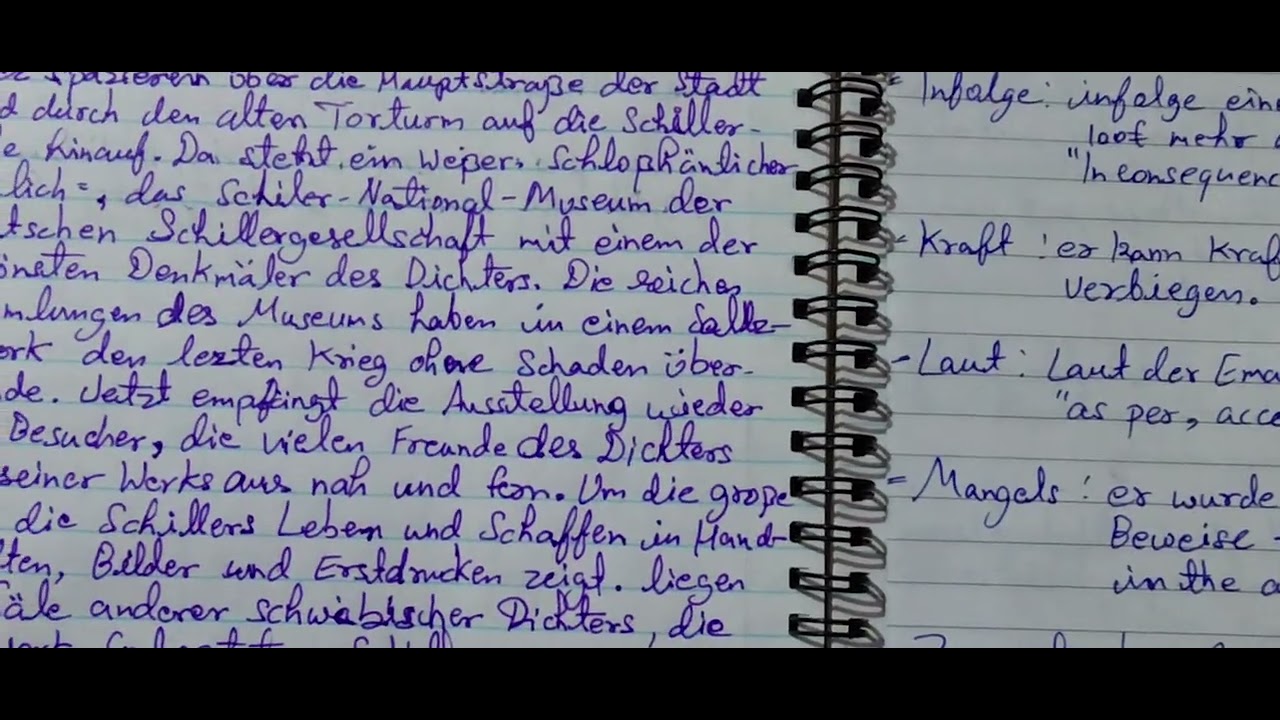 spazieren über die Hauptstraße der Stadt
d durch den alten Torturm auf die Schiller-
e hinauf. Da steht ein weißer, schloßhänlicher
lich=, das Schiler-National-Museum der
tschen Schillergesellschaft mit einem der
önsten Denkmäler des Dichters. Die reichen
mlungen des Museums haben in einem Salz-
erk den lezten Krieg ohne Schaden über-
de. Jetzt empfingt die Ausstellung wieder
Besucher, die vielen Freunde des Dichters
seiner Werks aus nah und fern. Um die große
die Schillers Leben und Schaffen in Hand-
ten, Bilder und Erstdrucken zeigt. liegen
äle anderer schwäbischer Dichters, die
= Infolge: infolge ein
laot mehr
"In consequenc
= Kraft : er kann Kraf
verbiegen.
- Laut : Laut der Ema
"as per, acco
= Mangels : er wurde
Beweise -
in the a